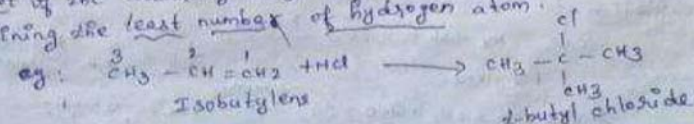 of the
ining the least number of hydrogen atom.
Cl
eg: ³CH3 - ²CH = ¹CH2 + HCl ⟶ CH3 - C - CH3
CH3
Isobutylene
butyl chloride